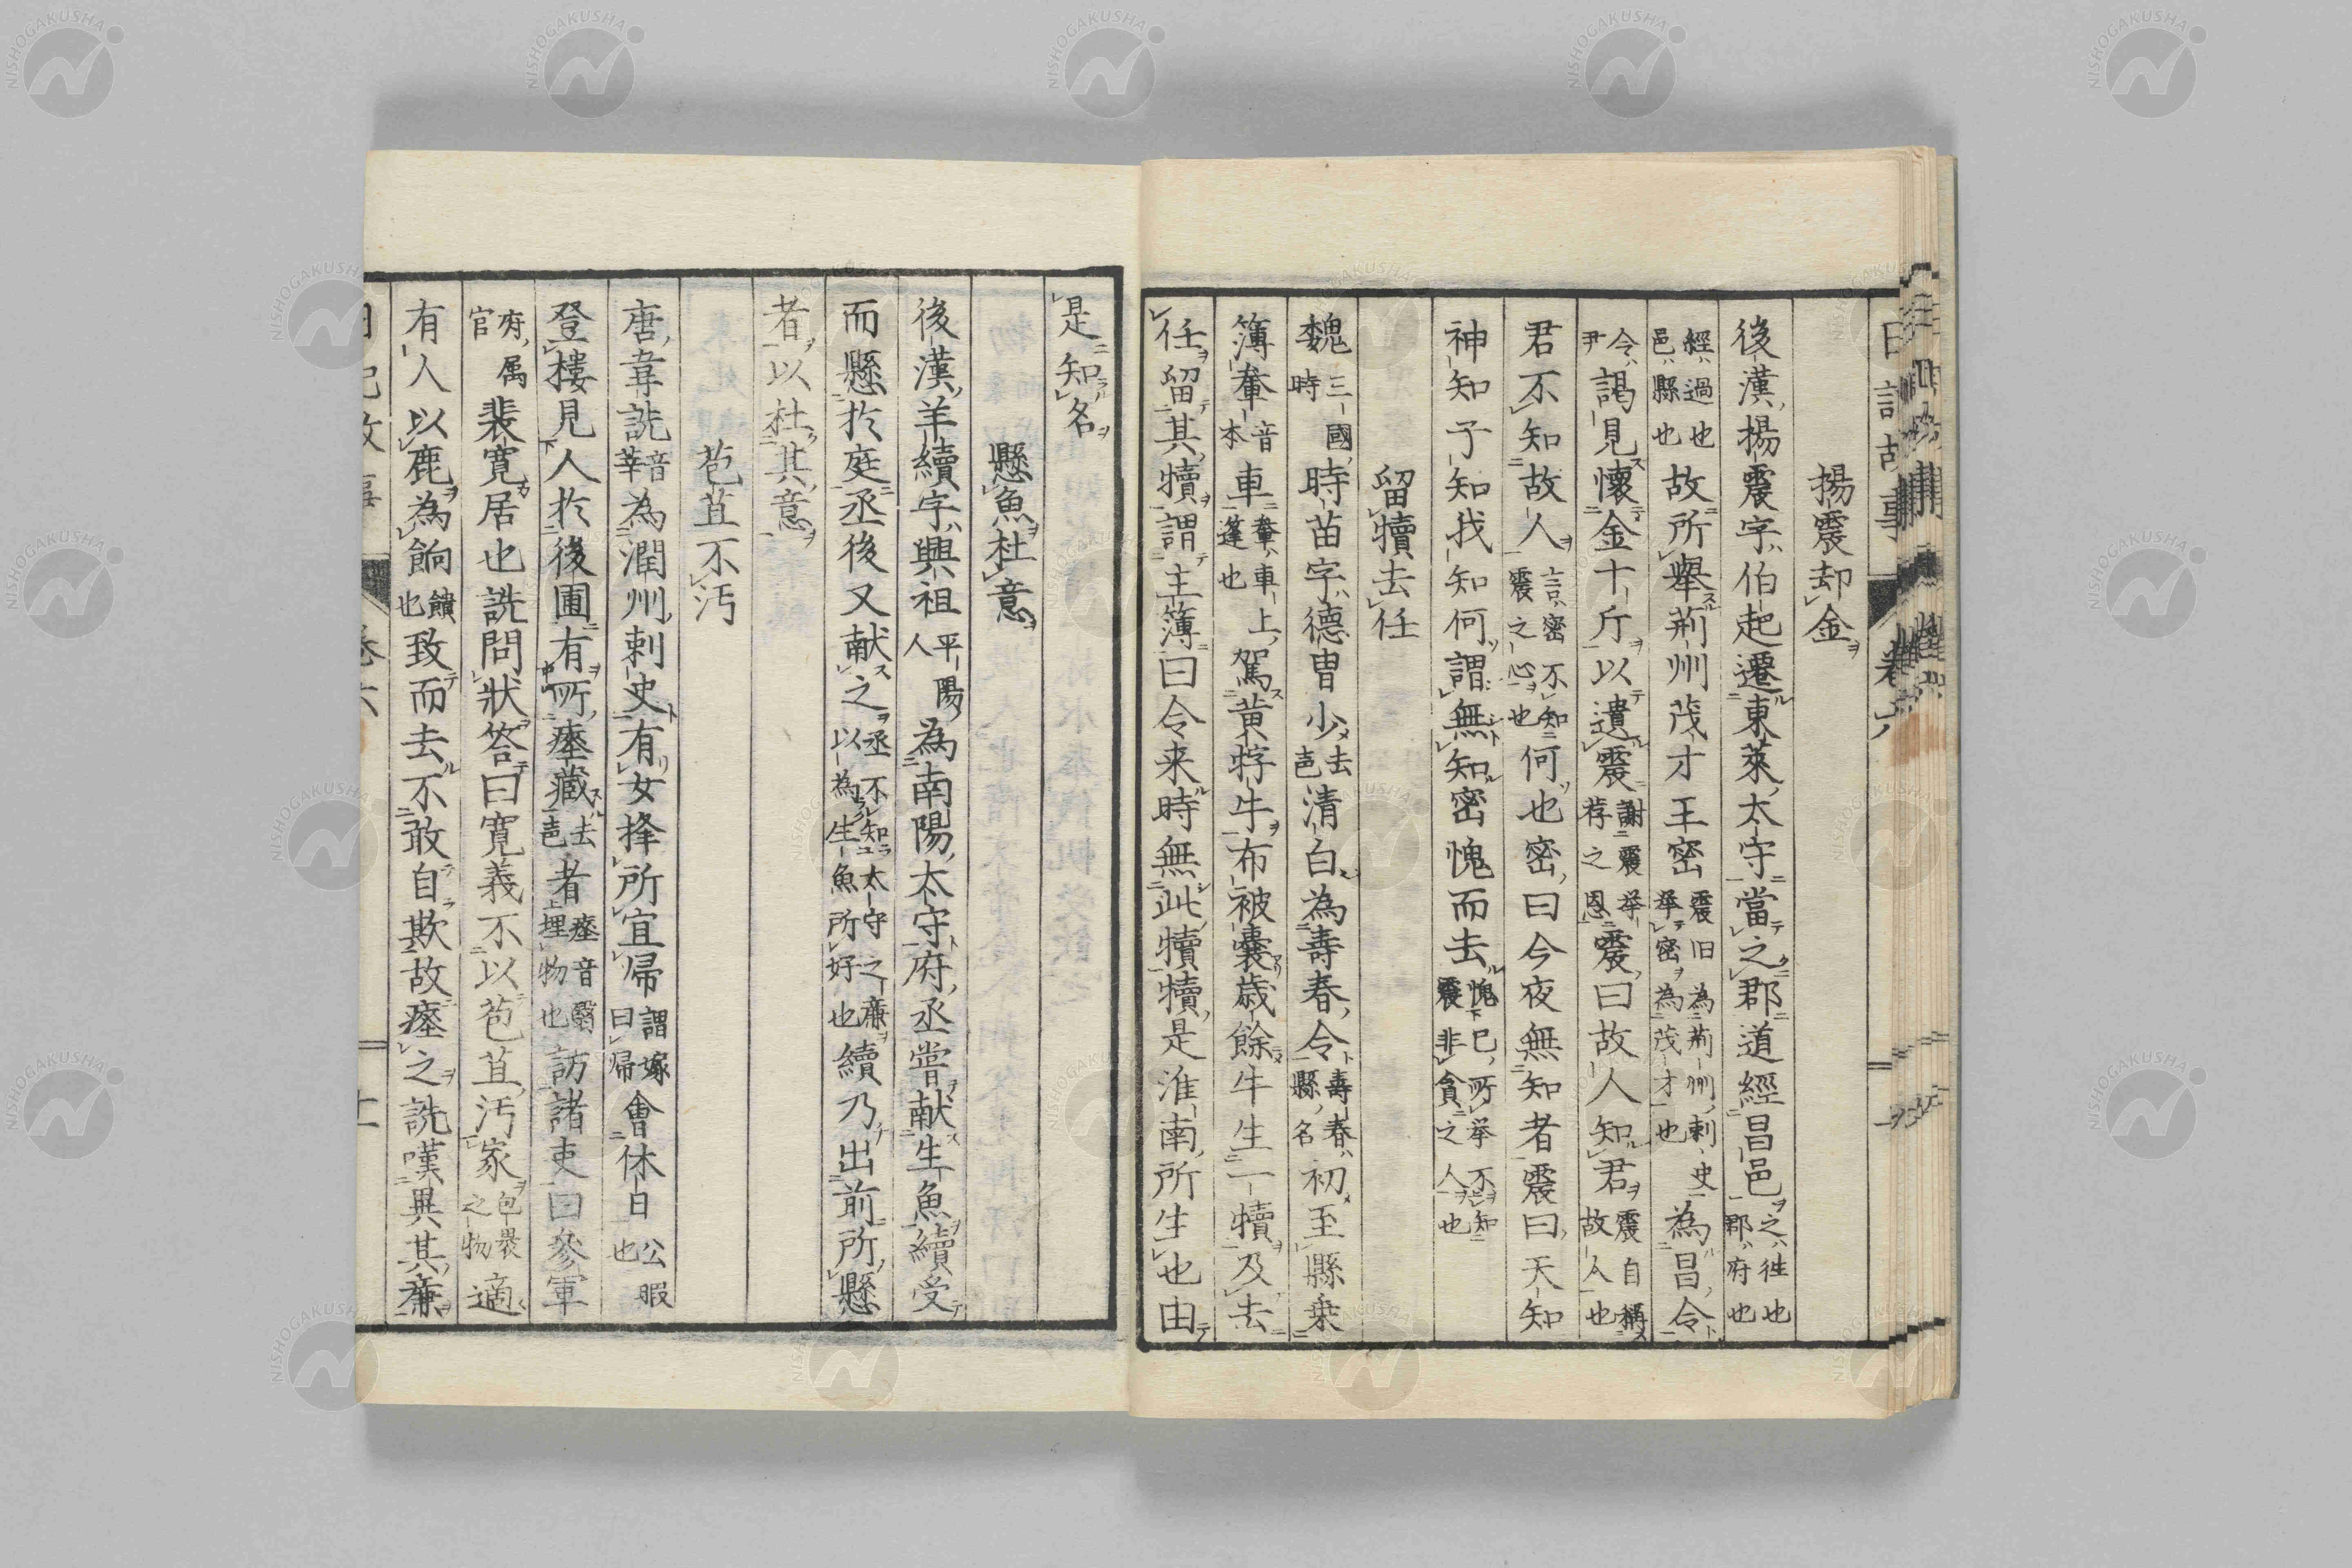 揚震却金
後漢揚震字伯起遷東萊太守當之郡道經昌邑之往也郡府也
經過也邑縣也故所舉荊州茂才王密震旧為荊州刺史挙密為茂才也為昌令
令尹謁見懷金十斤以遺震謝震挙荐之恩震曰故人知君震自稱故人也
君不知故人言密不知震之心也何也密曰今夜無知者震曰天知
神知子知我知何謂無知密愧而去愧下己所挙不知震非貪之人也
留犢去任
魏三國時時苗字德冑少去声清白為壽春令壽春縣名初至縣乗
簿軬音本車軬車上篷也駕黄牸牛布被囊歳餘牛生一犢及去
任留其犢謂主簿曰令来時無此犢犢是淮南所生也由
是知名
懸魚杜意
後漢羊續字興祖平陽人為南陽太守府丞嘗献生魚續受
而懸於庭丞後又献之丞不知太守之廉以為生魚所好也續乃出前所懸
者以杜其意
苞苴不汚
唐韋詵音莘為潤州刺史有女擇所宜帰謂嫁曰帰會休日公暇也
登樓見人於後圃有所瘞藏去声者瘞音翳埋物也訪諸吏曰參軍
府属官裴寛居也詵問狀答曰寛義不以苞苴汚家包裹之物適
有人以鹿為餉饋也致而去不敢自欺故瘞之詵嘆異其廉